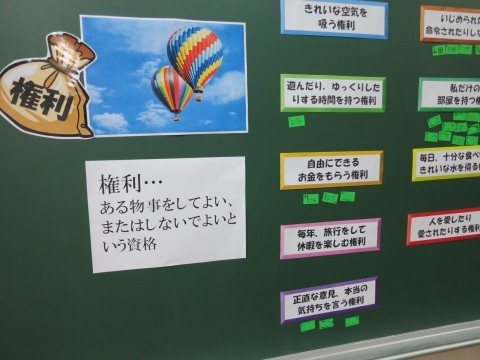 権利
権利…
ある物事をしてよい、
またはしないでよいと
いう資格
きれいな空気を
吸う権利
遊んだり、ゆっくりした
りする時間を持つ権利
自由にできる
お金をもらう権利
毎年、旅行をして
休暇を楽しむ権利
正直な意見、本当の
気持ちを言う権利
いじめられ
命令されたりしな
私だけの
部屋を持つ権
毎日、十分な食べ
きれいな水を得る
人を愛したり
愛されたりする権利